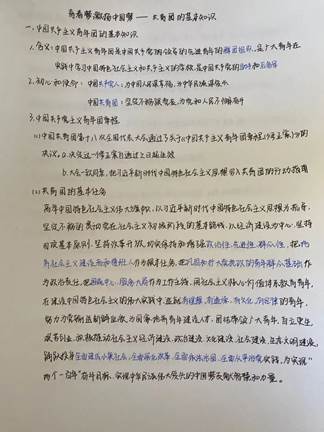 青春梦激扬中国梦 —— 共青团的基本知识
一.中国共产主义青年团的基本知识
1.含义:中国共产主义青年团是中国共产党领导的先进青年的群团组织,是广大青年在
实践中学习中国特色社会主义和共产主义的学校,是中国共产党的助手和后备军
2.初心和使命:中国共产党人:为中国人民谋幸福,为中华民族谋复兴
中国共青团:坚定不移跟党走,为党和人民不懈奋斗
3.中国共产主义青年团章程
(1)中国共青团第十八次全国代表大会通过了关于《中国共产主义青年团章程(修正案)》的
决议。a.决定这一修正案自通过之日起生效
b.大会一致同意,把习近平新时代中国特色社会主义思想写入共青团的行动指南
(2)共青团的基本任务
高举中国特色社会主义伟大旗帜,以习近平新时代中国特色社会主义思想为指导,
坚定不移的贯彻党在社会主义初级阶段的基本路线,以经济建设为中心,坚持
四项基本原则,坚持改革开放,切实保持和增强政治性、先进性、群众性,把
社会主义建设者和接班人作为根本任务,把巩固和扩大党执政的青年群众基础作
为政治责任,把围绕中心、服务大局作为工作主线,用社会主义核心价值体系教育青年,
在建设中国特色社会主义的伟大实践中,造就有理想、有道德、有文化、有纪律的青年,
努力为党输送新鲜血液,为国家培养青年建设人才,团结带领广大青年,自立更生
艰苦创业,积极推动社会主义经济建设、政治建设、文化建设、社会建设、生态文明建设,
全面建成小康社会、全面深化改革、全面依法治国、全面从严治党实践,为实现"
两个一百年"奋斗目标,实现中华民族伟大复兴的中国梦贡献智慧和力量。